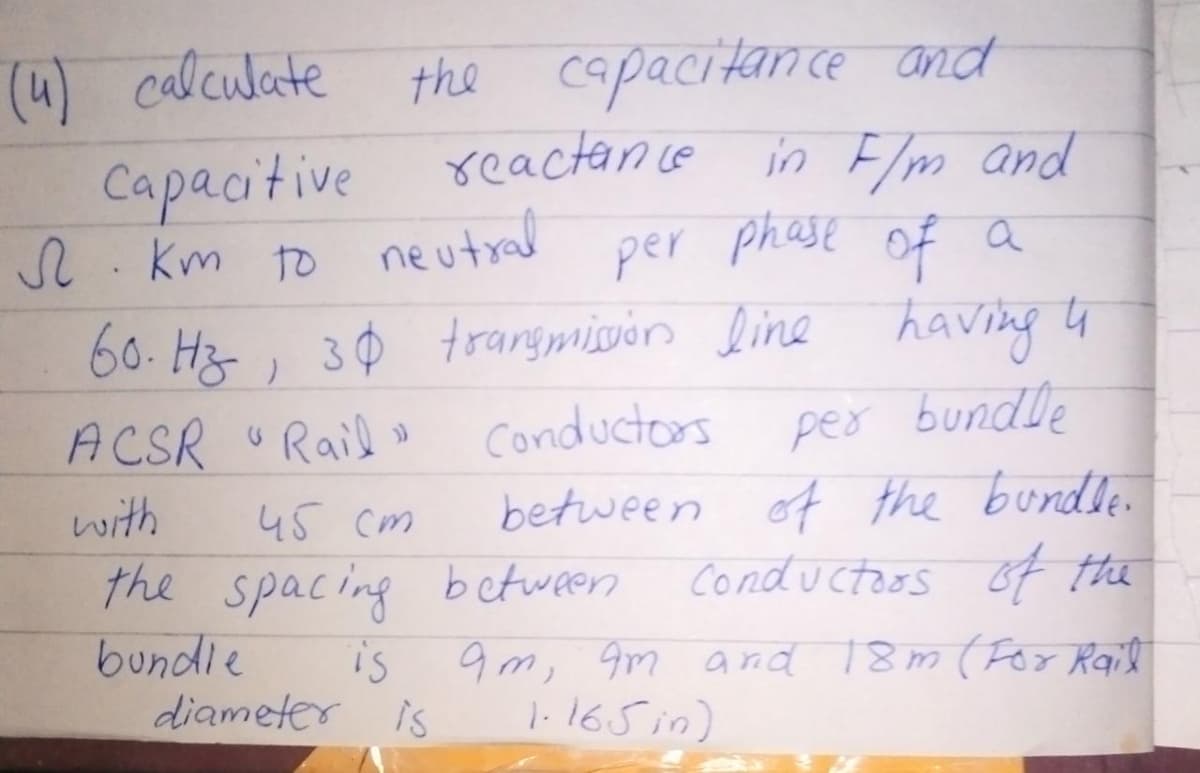 (4) calculate the capacitance and
capacitive reactance in F/m and
Ω . Km to neutral per phase of a
60. Hz , 3Φ transmission line having 4
ACSR "Rail" conductors per bundle
with 45 cm between of the bundle.
the spacing between conductors of the
bundle is 9m, 9m and 18m (For Rail
diameter is 1.165 in)